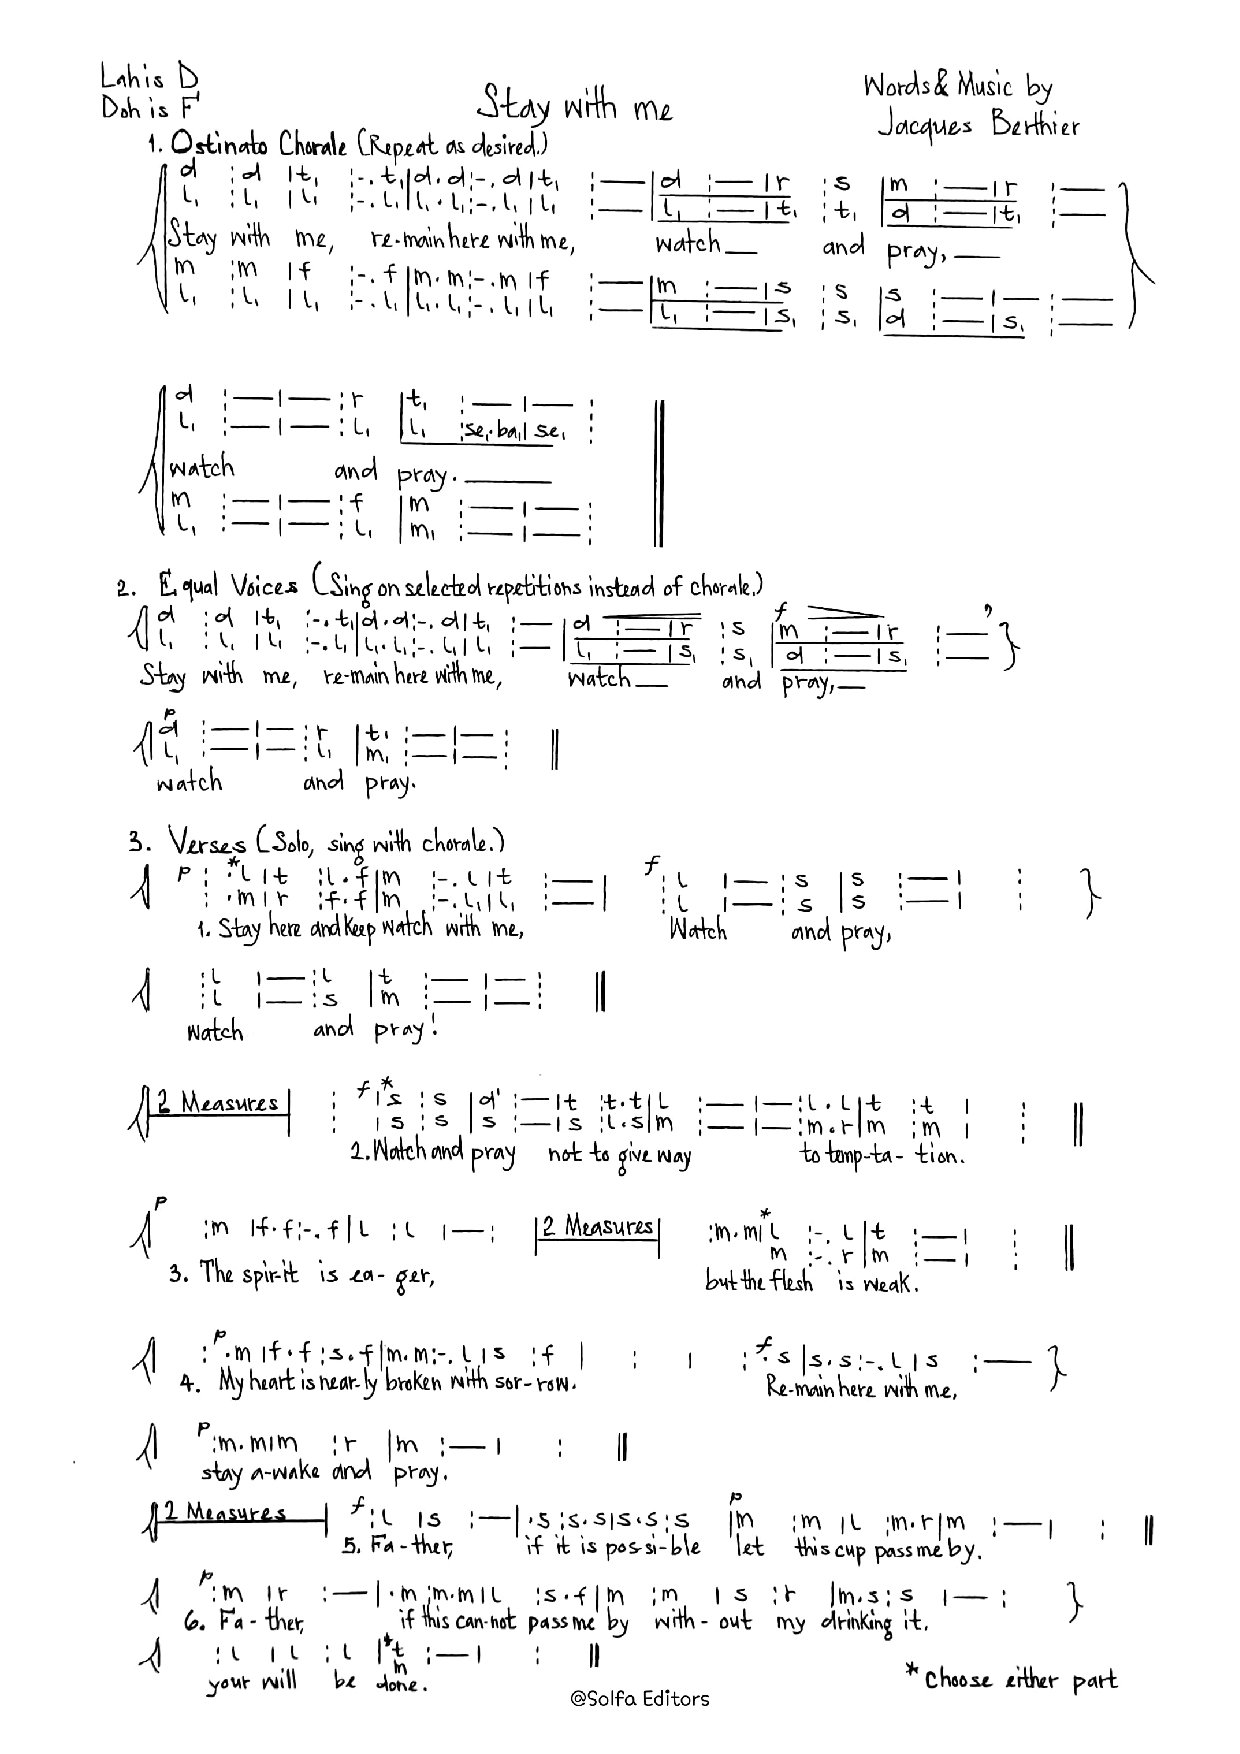 Lah is D
Doh is F
Stay with me
Words & Music by
Jacques Berthier
1. Ostinato Chorale (Repeat as desired.)
d :d |t₁ :-.t₁|d.d:-.d|t₁ :—|d :—|r :s |m :—|r :—
l₁ :l₁ |l₁ :-.l₁|l₁.l₁:-.l₁|l₁ :—|l₁ :—|t₁ :t₁ |d :—|t₁ :—
Stay with me, re-main here with me, watch__ and pray,__
m :m |f :-.f|m.m:-.m|f :—|m :—|s :s |s :—|— :—
l₁ :l₁ |l₁ :-.l₁|l₁.l₁:-.l₁|l₁ :—|l₁ :—|s₁ :s₁ |d :—|s₁ :—
d :—|— :r |t₁ :—|— :
l₁ :—|— :l₁ |l₁ :se₁.ba₁|se₁ :
watch and pray.____
m :—|— :f |m :—|— :
l₁ :—|— :l₁ |m₁ :—|— :
2. Equal Voices (Sing on selected repetitions instead of chorale.)
f
d :d |t₁ :-.t₁|d.d:-.d|t₁ :—|d :—|r :s |m :—|r :—
l₁ :l₁ |l₁ :-.l₁|l₁.l₁:-.l₁|l₁ :—|l₁ :—|s₁ :s₁ |d :—|s₁ :—
Stay with me, re-main here with me, watch__ and pray,__
p
d :—|— :r |t₁ :—|— :
l₁ :—|— :l₁ |m₁ :—|— :
watch and pray.
3. Verses (Solo, sing with chorale.)
p : *.l|t :l.f|m :-.l|t :—| f :l |— :s |s :—| :
: .m|r :f.f|m :-.l₁|l₁ :—| :l |— :s |s :—| :
1. Stay here and keep watch with me, Watch and pray,
:l |— :l |t :—|— :
:l |— :s |m :—|— :
watch and pray!
2 Measures : f *|s :s |d' :—|t :t.t|l :—|— :l.l|t :t | :
|s :s |s :—|s :l.s|m :—|— :m.r|m :m | :
2. Watch and pray not to give way to temp-ta-tion.
p :m |f.f:-.f|l :l |— : 2 Measures :m.m|*l :-.l|t :—| :
m :-.r|m :—| :
3. The spir-it is ea-ger, but the flesh is weak.
: p .m|f.f:s.f|m.m:-.l|s :f | : | : f .s|s.s:-.l|s :—
4. My heart is near-ly broken with sor-row. Re-main here with me,
p :m.m|m :r |m :—| :
stay a-wake and pray.
2 Measures f :l |s :—|.s:s.s|s.s:s p |m :m |l :m.r|m :—| :
5. Fa-ther, if it is pos-si-ble let this cup pass me by.
p :m |r :—|.m:m.m|l :s.f|m :m |s :r |m.s:s |— :
6. Fa-ther, if this can-not pass me by with-out my drinking it.
:l |l :l |*t :—| :
m
your will be done.
* Choose either part
@Solfa Editors